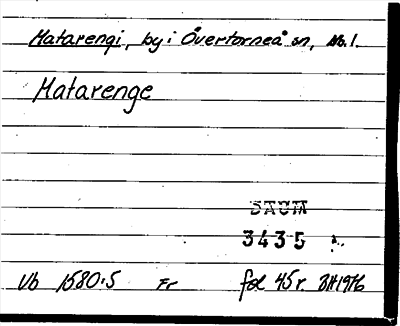 Matarengi, by i Övertorneå sn, Nb.l.
Matarenge
DAUM
3435
Vb 1580:5 Fr fol 45r. BH1976